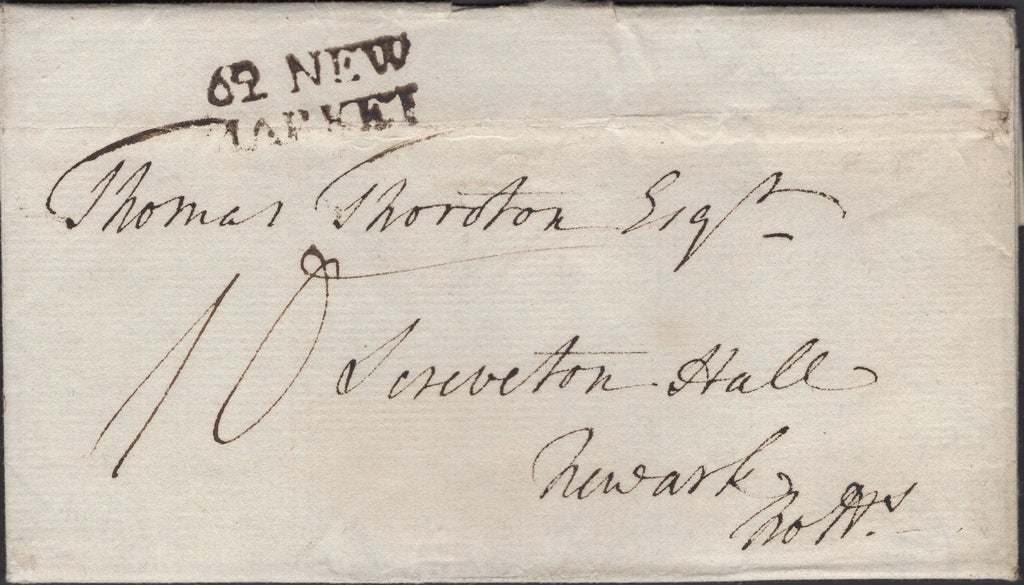 62 NEW
MARKET
Thomas Thoroton Esqr
10
Screveton Hall
Newark
Notts.